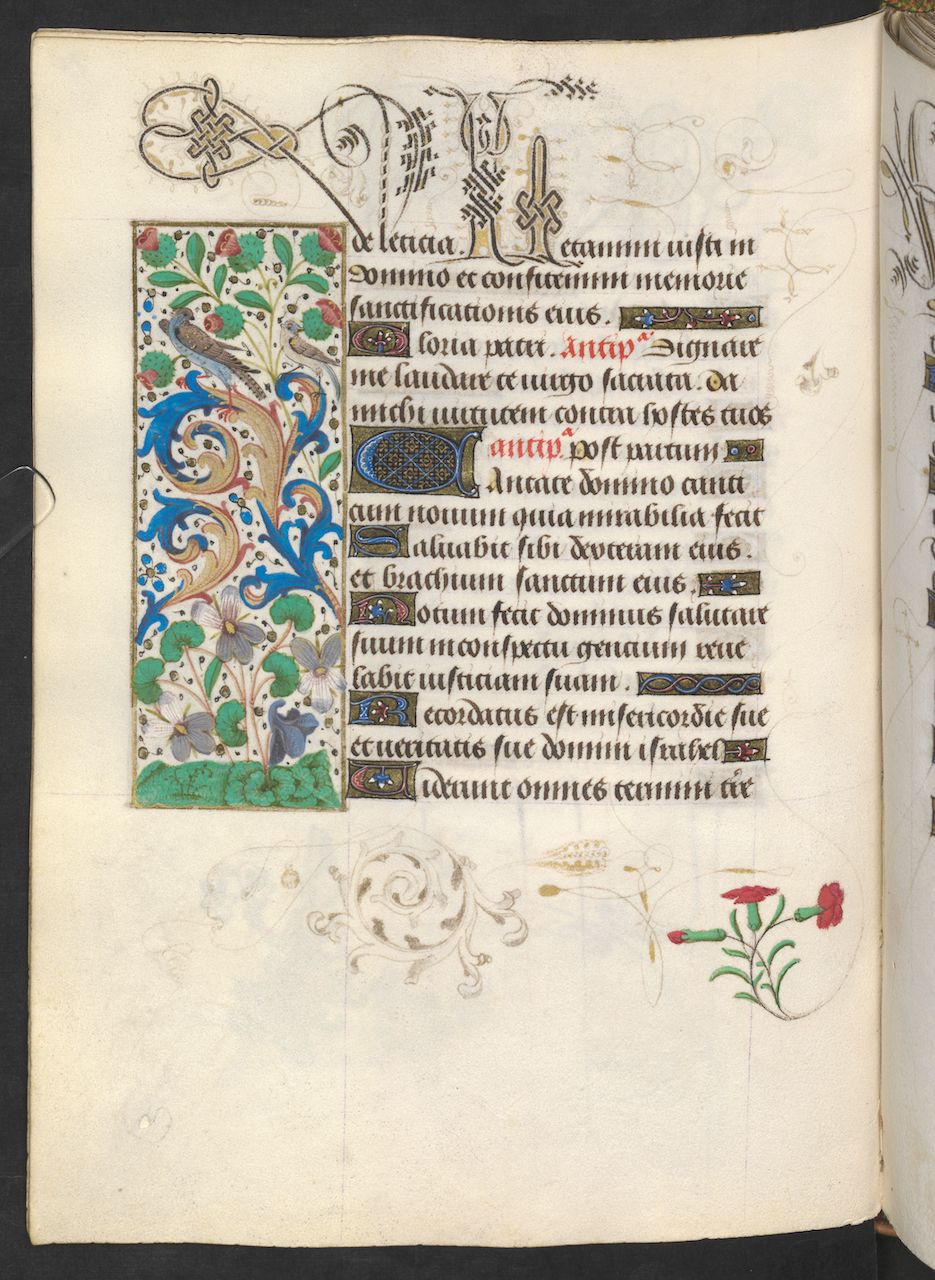 de leticia. Letamini iusti in
domino et confitemini memorie
sanctificationis eius.
Gloria patri. Antipᵃ Dignare
me laudare te uirgo sacrata. Da
michi uirtutem contra hostes tuos
antip.ᵃ post partum
Cantate domino canti
cum nouum quia mirabilia fecit
Saluabit sibi dextera eius.
et brachium sanctum eius.
Notum fecit dominus salutare
suum in conspectu gencium reue
labit iusticiam suam.
Recordatus est misericordie sue
et ueritatis sue domui israhel
Uiderunt omnes termini tr̄e